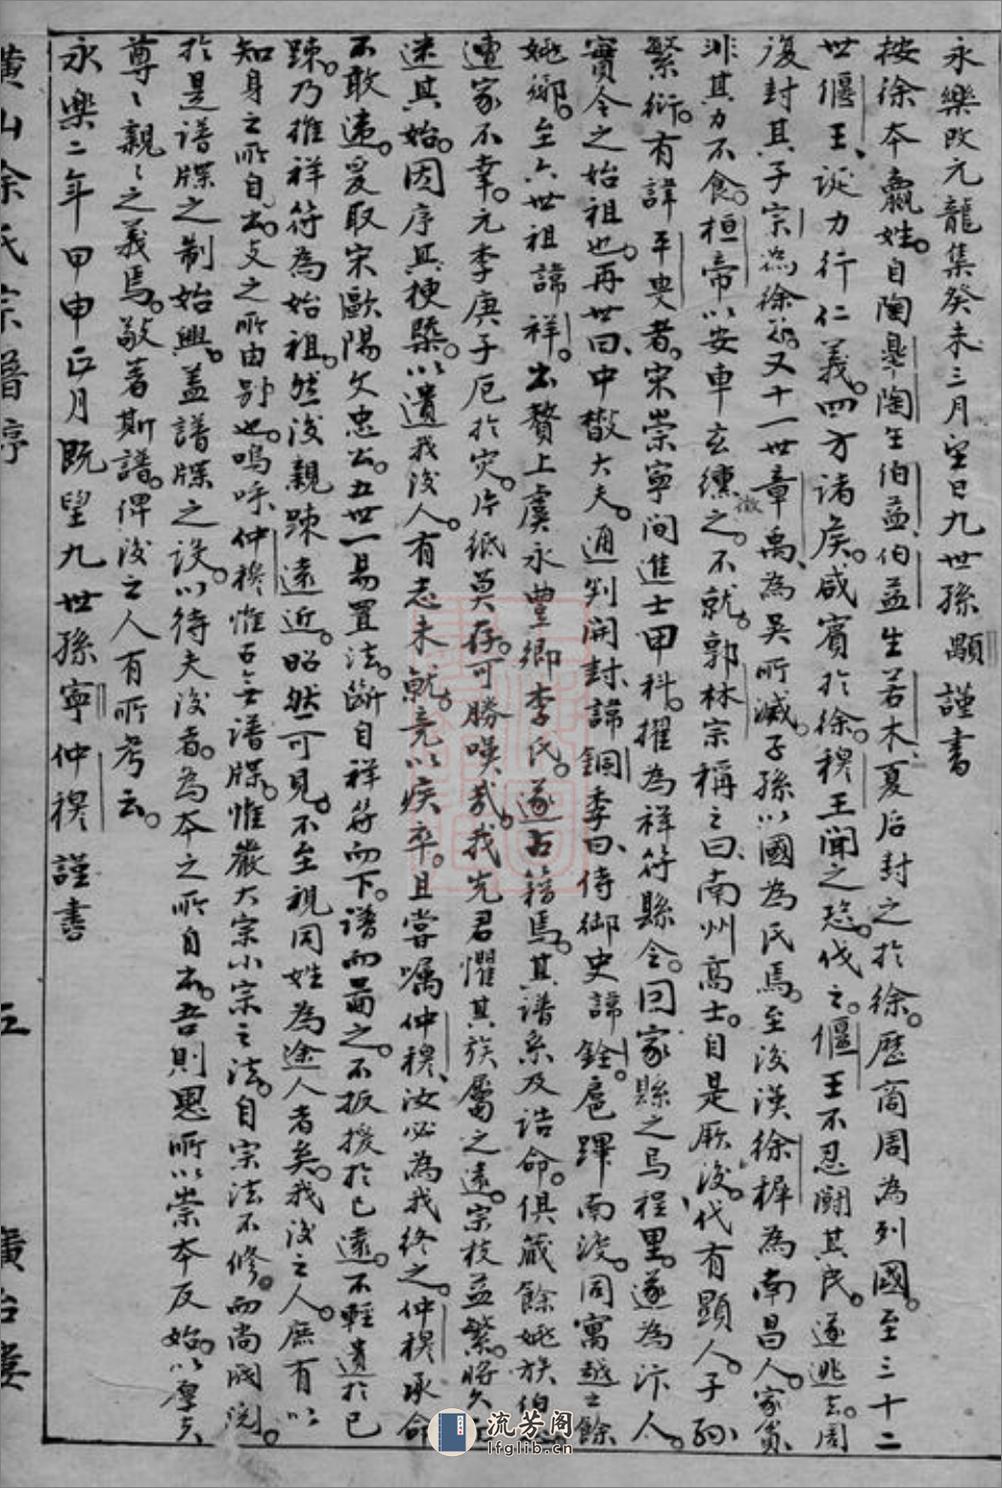 永樂改元龍集癸未三月望日九世孫顒謹書
按徐本嬴姓。自陶皋陶生伯益伯益生若木夏后封之於徐。歷商周為列國。至三十二
世偃王、誕力行仁義。四方諸侯。咸賓於徐。穆王聞之恐。伐之。偃王不忍鬪其民。遂逃去。周
復封其子宗為徐子。又十一世章禹、為吳所滅。子孫以國為氏焉。至後漢徐穉為南昌人。家貧
非其力不食。桓帝以安車玄纁徵之。不就。郭林宗稱之曰、南州高士。自是厥後。代有顯人。子孫
繁衍。有諱平叟者。宋崇寧間進士甲科。擢為祥符縣令。回家縣之烏程里。遂為汴人。
實今之始祖也。再世曰、中散大夫。通判開封、諱銅季曰、侍御史諱銓。扈蹕南渡。同寓越之餘
姚鄉。至六世祖諱祥。出贅上虞永豐鄉李氏。遂占籍焉。其譜系及誥命。俱藏餘姚族伯
連家不幸。元季庚子厄於灾。片紙莫存。可勝嘆哉。我先君懼其族屬之遠。宗枝益繁。將久而
迷其始。因序其梗槩。以遺我後人。有志未就。竟以疾卒。且嘗囑仲穆、汝必為我終之。仲穆承命
不敢違。爰取宋歐陽文忠公。五世一易置法。斷自祥符而下。譜而圖之。不扳援於已遠。不輕遺於已
踈。乃推祥符為始祖。然後親踈遠近。昭然可見。不至視同姓為途人者矣。我後之人。庶有以
知身之所自出。支之所由別也。嗚呼。仲穆惟古無譜牒。惟嚴大宗小宗之法。自宗法不修。而尚閥閱。
於是譜牒之制始興。蓋譜牒之設。以待夫後者。為本之所自出。吾則思所以崇本反始。以厚夫
尊尊親親之義焉。敬著斯譜。俾後之人有所考云。
永樂二年甲申正月既望九世孫寧仲穆謹書
橫山徐氏宗譜序
五
流芳阁
lfglib.cn